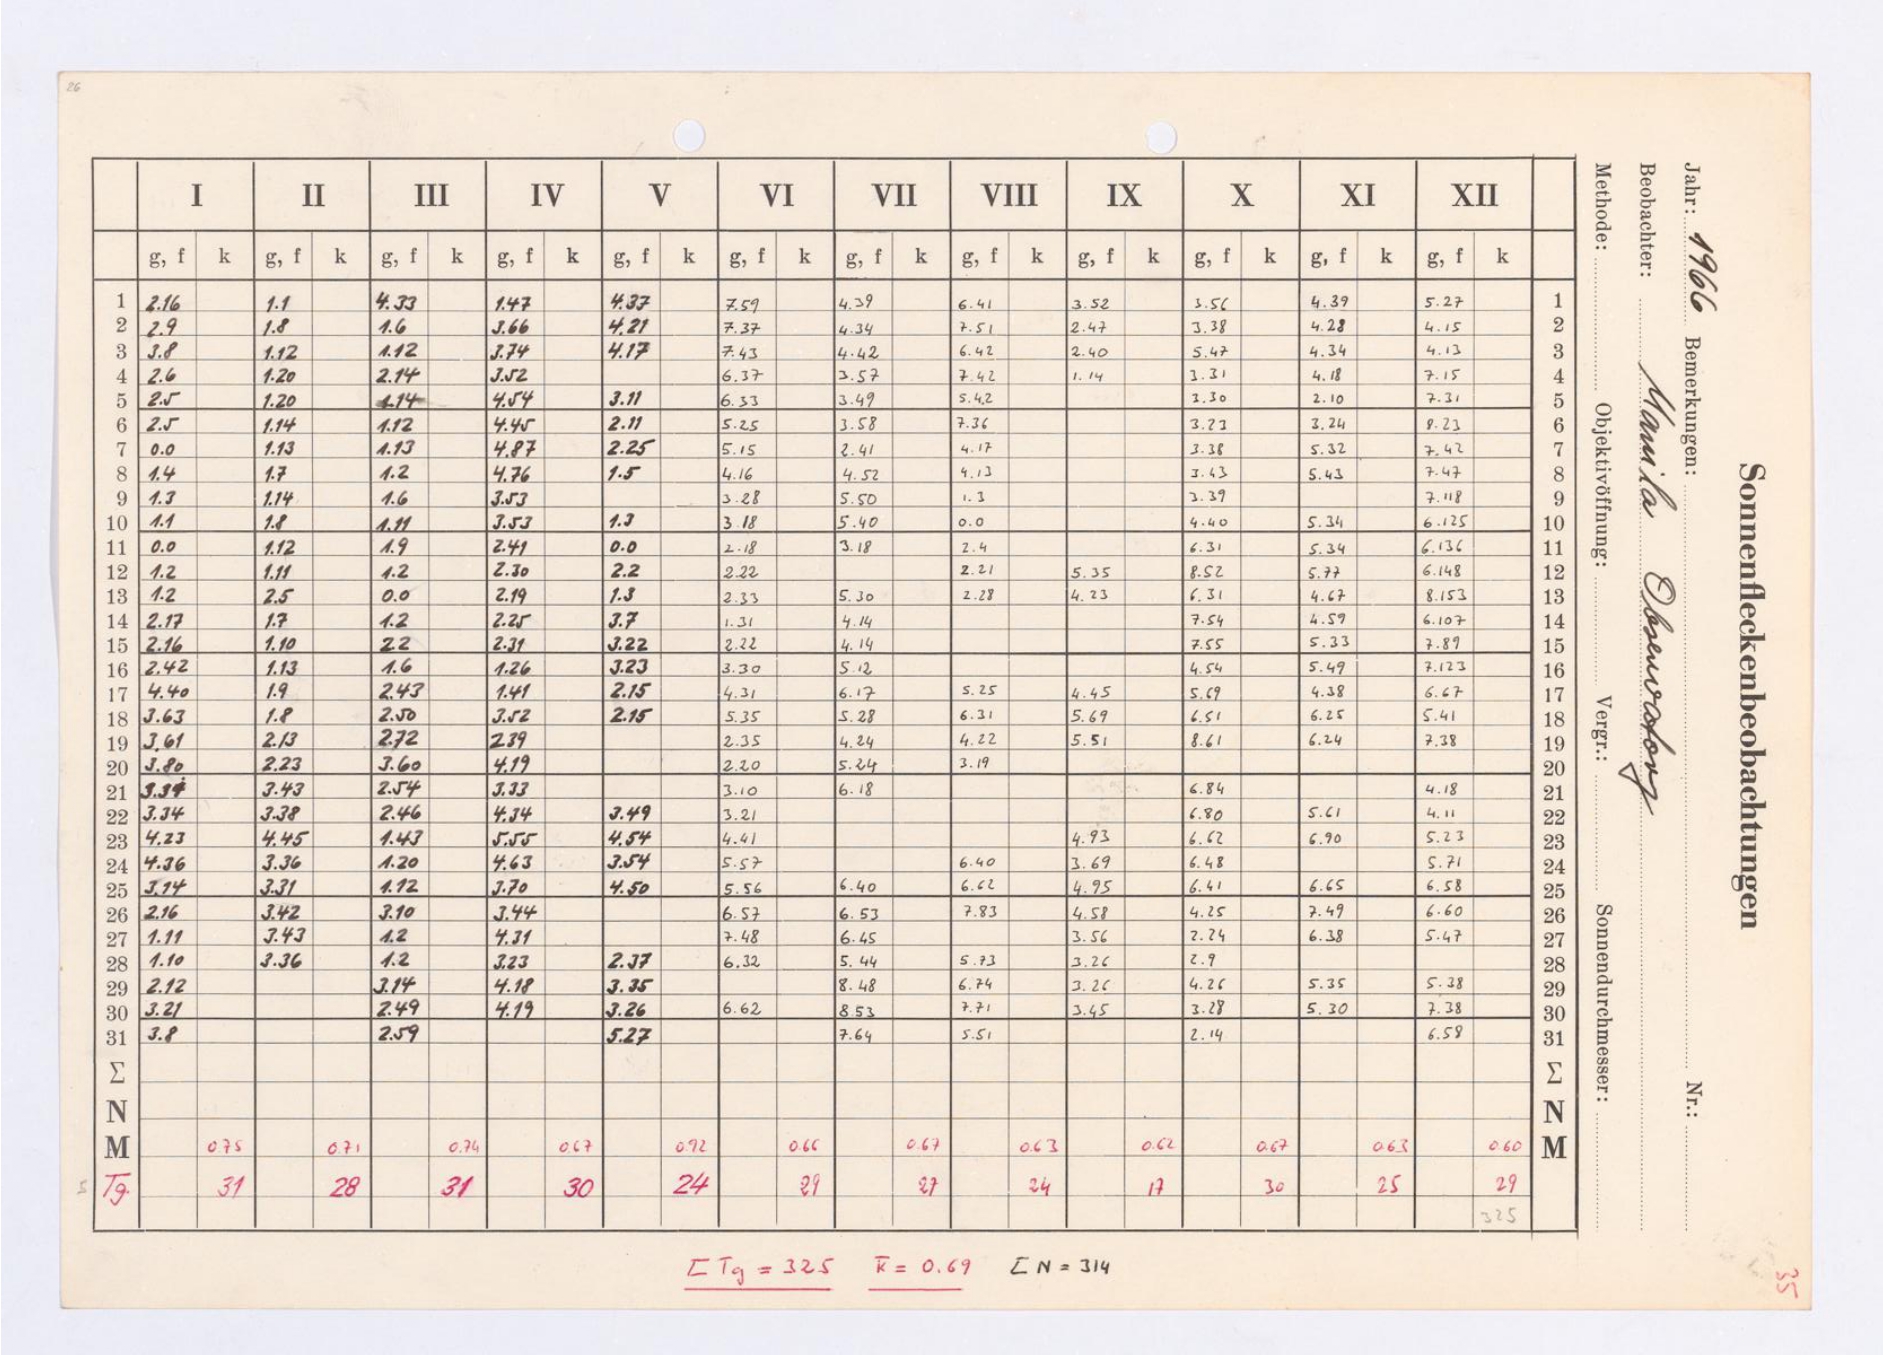 26
Sonnenfleckenbeobachtungen
Jahr: 1966 Bemerkungen: Nr.:
Beobachter: Manila Observatory
Methode: Objektivöffnung: Vergr.: Sonnendurchmesser:
I II III IV V VI VII VIII IX X XI XII
g, f k g, f k g, f k g, f k g, f k g, f k g, f k g, f k g, f k g, f k g, f k g, f k
1 2.16 1.1 4.33 1.47 4.37 7.59 4.39 6.41 3.52 3.56 4.39 5.27 1
2 2.9 1.8 1.6 3.66 4.21 7.37 4.34 7.51 2.47 3.38 4.28 4.15 2
3 3.8 1.12 1.12 3.74 4.17 7.43 4.42 6.42 2.40 5.47 4.34 4.13 3
4 2.6 1.20 2.14 3.52 6.37 3.57 7.42 1.14 3.31 4.18 7.15 4
5 2.5 1.20 1.14 4.54 3.11 6.33 3.49 5.42 3.30 2.10 7.31 5
6 2.5 1.14 1.12 4.45 2.11 5.25 3.58 7.36 3.23 3.24 8.23 6
7 0.0 1.13 1.13 4.87 2.25 5.15 2.41 4.17 3.38 5.32 7.42 7
8 1.4 1.7 1.2 4.76 1.5 4.16 4.52 4.13 3.43 5.43 7.47 8
9 1.3 1.14 1.6 3.53 3.28 5.50 1.3 3.39 7.118 9
10 1.1 1.8 1.11 3.53 1.3 3.18 5.40 0.0 4.40 5.34 6.125 10
11 0.0 1.12 1.9 2.41 0.0 2.18 3.18 2.4 6.31 5.34 6.136 11
12 1.2 1.11 1.2 2.30 2.2 2.22 2.21 5.35 8.52 5.77 6.148 12
13 1.2 2.5 0.0 2.19 1.3 2.33 5.30 2.28 4.23 6.31 4.67 8.153 13
14 2.17 1.7 1.2 2.25 3.7 1.31 4.14 7.54 4.59 6.107 14
15 2.16 1.10 22 2.31 3.22 2.22 4.14 7.55 5.33 7.89 15
16 2.42 1.13 1.6 1.26 3.23 3.30 5.12 4.54 5.49 7.123 16
17 4.40 1.9 2.43 1.41 2.15 4.31 6.17 5.25 4.45 5.69 4.38 6.67 17
18 3.63 1.8 2.50 3.52 2.15 5.35 5.28 6.31 5.69 6.51 6.25 5.41 18
19 3.61 2.13 2.72 239 2.35 4.24 4.22 5.51 8.61 6.24 7.38 19
20 3.80 2.23 3.60 4.19 2.20 5.24 3.19 20
21 3.43 2.54 3.33 3.10 6.18 6.84 4.18 21
22 3.34 3.38 2.46 4.34 3.49 3.21 6.80 5.61 4.11 22
23 4.23 4.45 1.43 5.55 4.54 4.41 4.93 6.62 6.90 5.23 23
24 4.36 3.36 1.20 4.63 3.54 5.57 6.40 3.69 6.48 5.71 24
25 3.14 3.31 1.12 3.70 4.50 5.56 6.40 6.62 4.95 6.41 6.65 6.58 25
26 2.16 3.42 3.10 3.44 6.57 6.53 7.83 4.58 4.25 7.49 6.60 26
27 1.11 3.43 1.2 4.31 7.48 6.45 3.56 2.24 6.38 5.47 27
28 1.10 3.36 1.2 3.23 2.37 6.32 5.44 5.73 3.26 2.9 28
29 2.12 3.14 4.18 3.35 8.48 6.74 3.26 4.26 5.35 5.38 29
30 3.21 2.49 4.19 3.26 6.62 8.53 7.71 3.45 3.28 5.30 7.38 30
31 3.8 2.59 5.27 7.64 5.51 2.14 6.58 31
Σ Σ
N N
M 0.75 0.71 0.74 0.67 0.92 0.66 0.67 0.63 0.62 0.67 0.63 0.60 M
Tg. 31 28 31 30 24 29 27 24 17 30 25 29
325
Σ Tg = 325 k̅ = 0.69 Σ N = 314
35